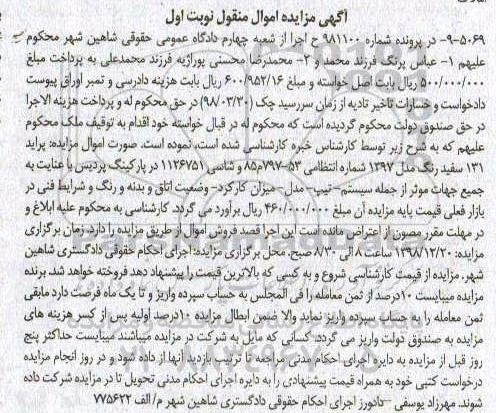 آگهی مزایده اموال منقول نوبت اول
۹-۵۰۶۹- در پرونده شماره ۹۸۱۱۰۰ ح اجرا از شعبه چهارم دادگاه عمومی حقوقی شاهین شهر محکوم
علیهم ۱- عباس پرنگ فرزند محمد و ۲- محمدرضا محسنی پوراژیه فرزند محمدعلی به پرداخت مبلغ
۵۰۰/۰۰۰/۰۰۰ ریال بابت اصل خواسته و مبلغ ۶۰۰/۹۵۲/۱۶ ریال بابت هزینه دادرسی و تمبر اوراق پیوست
دادخواست و خسارات تاخیر تادیه از زمان سررسید چک (۹۸/۰۳/۲۰) در حق محکوم له و پرداخت هزینه الاجرا
در حق صندوق دولت محکوم گردیده است که محکوم له در قبال خواسته خود اقدام به توقیف ملک محکوم
علیهم که به شرح زیر توسط کارشناس خبره کارشناسی شده است، نموده است. صورت اموال مزایده: پراید
۱۳۱ سفید رنگ مدل ۱۳۹۷ شماره انتظامی ۵۳-۷۹۷م۸۵ و شاسی ۱۱۲۶۷۵۱ در پارکینگ پردیس با عنایت به
جمیع جهات موثر از جمله سیستم- تیپ- مدل- میزان کارکرد- وضعیت اتاق و بدنه و رنگ و شرایط فنی در
بازار فعلی قیمت پایه مزایده آن مبلغ ۴۶۰/۰۰۰/۰۰۰ ریال برآورد می گردد. کارشناسی به محکوم علیه ابلاغ و
در مهلت مقرر مصون از اعتراض مانده است این اجرا قصد فروش اموال از طریق مزایده را دارد. زمان برگزاری
مزایده: ۱۳۹۸/۱۲/۲۰ ساعت ۸ الی ۸/۳۰ صبح. محل برگزاری مزایده: اجرای احکام حقوقی دادگستری شاهین
شهر. مزایده از قیمت کارشناسی شروع و به کسی که بالاترین قیمت را پیشنهاد دهد فروخته خواهد شد. برنده
مزایده میبایست ۱۰درصد از ثمن معامله را فی المجلس به حساب سپرده واریز و تا یک ماه فرصت دارد مابقی
ثمن معامله را به حساب سپرده واریز نماید والا ضمن ابطال مزایده ۱۰درصد اولیه پس از کسر هزینه های
مزایده به صندوق دولت واریز می گردد. کسانی که مایل به شرکت در مزایده میباشند میبایست حداکثر پنج
روز قبل از مزایده به دایره اجرای احکام مدنی مراجعه تا ترتیب بازدید آنها از داده شود و در روز انجام مزایده
درخواست کتبی خود به همراه قیمت پیشنهادی را به دایره اجرای احکام مدنی تحویل تا در مزایده شرکت داده
شوند. مهرزاد یوسفی -دادورز اجرای احکام حقوقی دادگستری شاهین شهر م/الف ۷۷۵۶۲۲